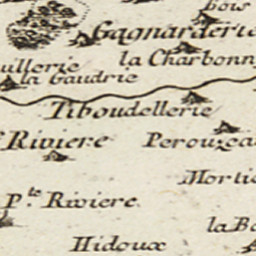 bois
Gagnarderie
la Charbonn
uillerie
la Gaudrie
Tiboudellerie
Riviere
Perouzea
Mortie
P.te Riviere
la Ba
Hidoux